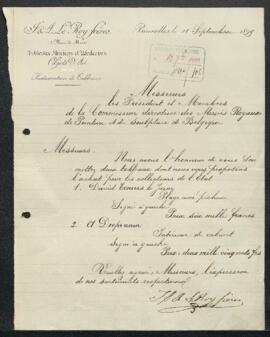 J. & A. Le Roy frères
Bruxelles, le 11 Septembre 1899
Tableaux Anciens et Modernes
Objets d'Art
Restauration de Tableaux
Messieurs
les Président et Membres
de la Commission directrice des Musées Royaux
de Peinture et de Sculpture de Belgique
Messieurs.
Nous avons l'honneur de vous sou
mettre deux tableaux dont nous proposons
l'achat pour les collections de l'Etat
1. David Teniers le Jeune
Signé à gauche
Prix six mille francs
2. A
Intérieur de cabaret
Signé à gauche
Prix, deux mille cinq cents frs
Veuillez agréer, Messieurs, l'expression
de nos sentiments respectueux
J & A Le Roy frères